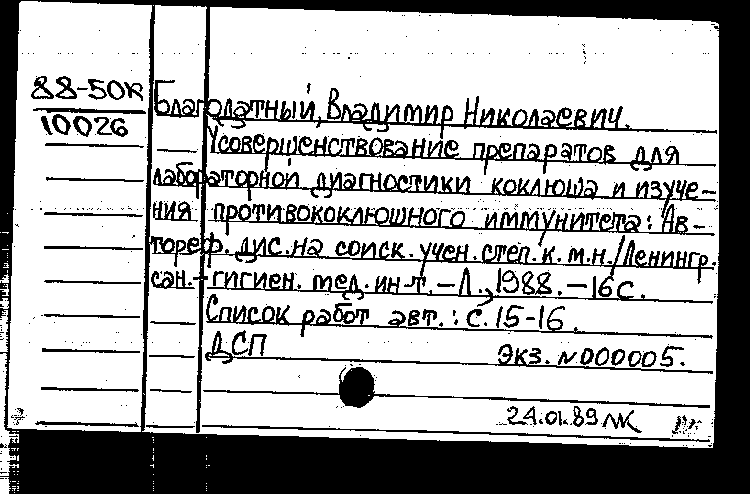 88-50к
10026
Благодатный, Владимир Николаевич.
Усовершенствование препаратов для
лабораторной диагностики коклюша и изуче-
ния противококлюшного иммунитета: Ав-
тореф. дис. на соиск. учен. степ. к. м. н. / Ленингр.
сан.-гигиен. мед. ин-т. – Л., 1988. – 16 с.
Список работ авт.: с. 15-16.
ДСП Экз. N 000005.
24.01.89